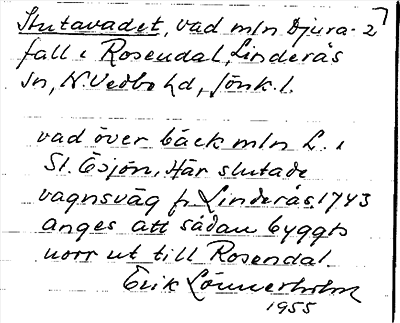 Slutavadet, vad mln Djura-
fall i Rosendal, Linderås
sn, N. Vedbo hd, Jönk. l.
vad över bäck mln L. i
St. Esjön, Här slutade
vagnsväg fr Linderås. 1743
anges att sådan byggts
norr ut till Rosendal.
Erik Lönnerholm
1955